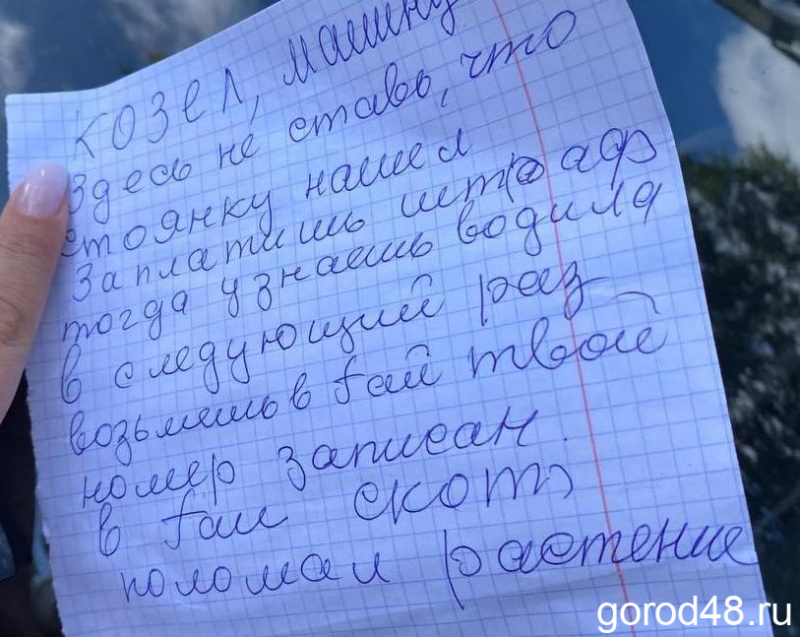 козел, машину
здесь не ставь, что
стоянку нашел
заплатишь штраф
тогда узнаешь водила
в следующий раз
возьмешь в гай твой
номер записан.
в гаи скот
поломал растение
gorod48.ru